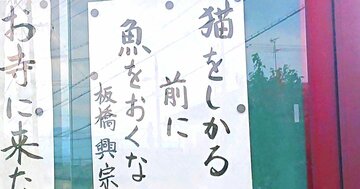 猫をしかる
前に
魚をおくな
板橋興宗
お寺に来た